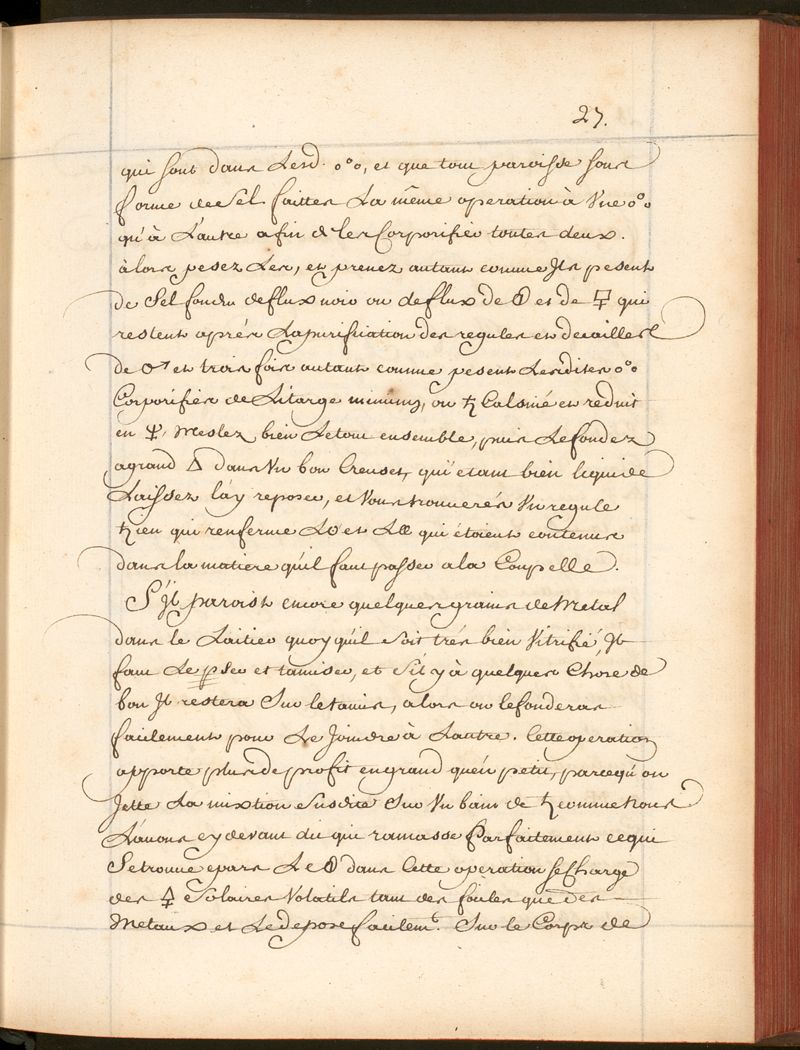 27.
qui sont dans Lesd. o°o, et que tout paroisse sous
forme de Sel faittes La même operation à Vne o°o
qu'à L'autre afin de les Corporifier toutes deux.
àlors pesez Les, et prenez autant comme Jls pesent
de Sel fondu deflux noir ou deflux de 🜕 et de 🜿 qui
restent aprés Lapurification des regules et decailles
de ♂ et trois fois autant comme pesent Lesdites o°o
Corporifiées de Litarge minium, ou ♄ Calsiné et reduit
en 🜍, Meslez bien Letout ensemble, puis Lefondez
agrand △ dans Vn bon Creuset, qui êtant bien liquide
Laissez láy reposer, et Vous trouuerés Vn regule
♄ien qui renferme L☉ et L☾ qui étoient contenus
dans la matiere qu'il faut passer a la Coupelle.
S'Jl paroist encore quelques grains de Metal
dans le Laitier quoy qu'il Soit trés bien Vitrifié, Jl
faut Le pser et tamiser, et S'il y à quelques Chose de
bon Jl restera Sur letamis, alors on lefonderas
facilement pour Le Joindre à Lautre. Cette operation
apporte plus de profit en grand quén petit, parcequ'on
Jette La mixtion Susdite Sur Vn bain de ♄ comme Nous
L'auons cy devant dit qui ramasse Parfaitement cequi
Setrouue epars Le 🜕 dans Cette operation se Charge
des 🜍 Solaires Volatils tant des foules que des
Metaux et Ledepose facilem.t Sur le Corps de